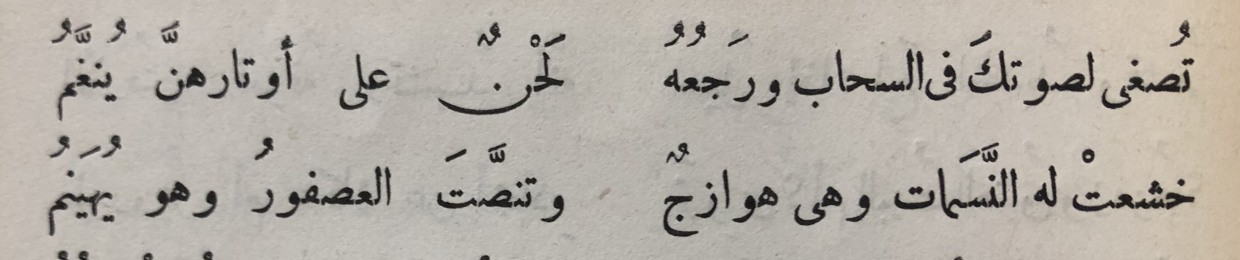 تُصغى لصوتكَ فى السحاب ورَجعُهُ لَحْنٌ على أوتارهنَّ يُنغَّمُ
خشعتْ له النَّسَمات وهى هوازجٌ وتنصَّتَ العصفورُ وهو يُهَينمُ